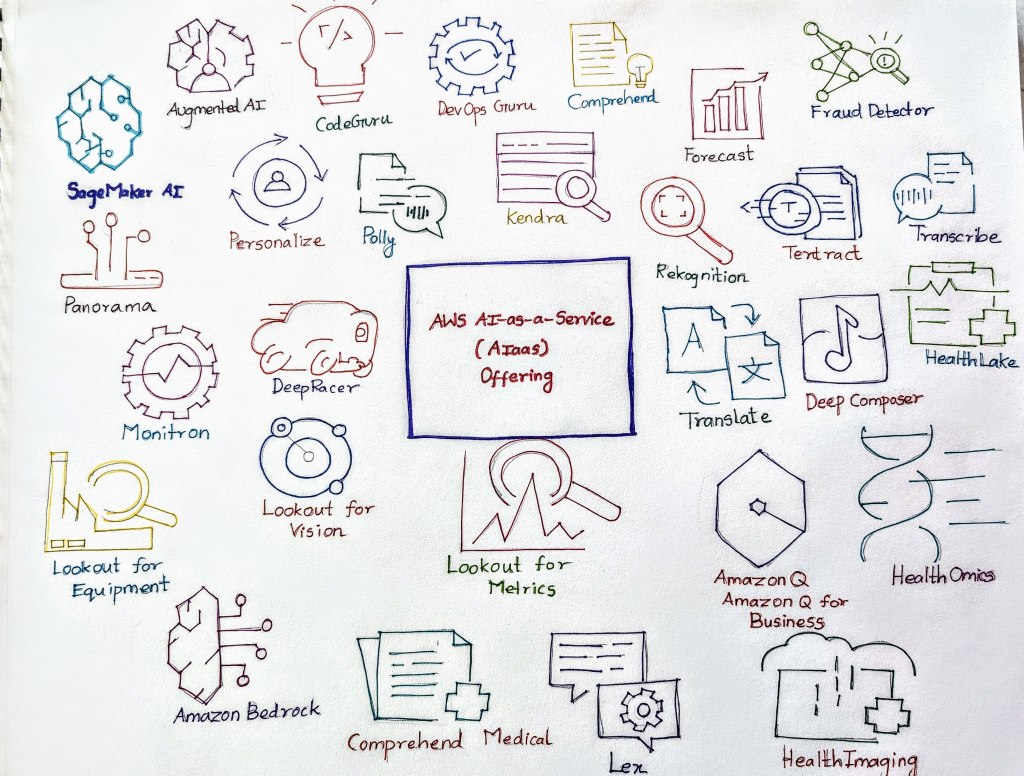 Augmented AI
CodeGuru
DevOps Guru
Comprehend
Fraud Detector
SageMaker AI
Forecast
Personalize
Polly
Kendra
Rekognition
Textract
T
Transcribe
Panorama
AWS AI-as-a-Service
(AIaas)
Offering
A
文
HealthLake
DeepRacer
Translate
Deep Composer
Monitron
Lookout for
Vision
Lookout for
Equipment
Lookout for
Metrics
Amazon Q
Amazon Q for
Business
HealthOmics
Amazon Bedrock
Comprehend Medical
Lex
HealthImaging